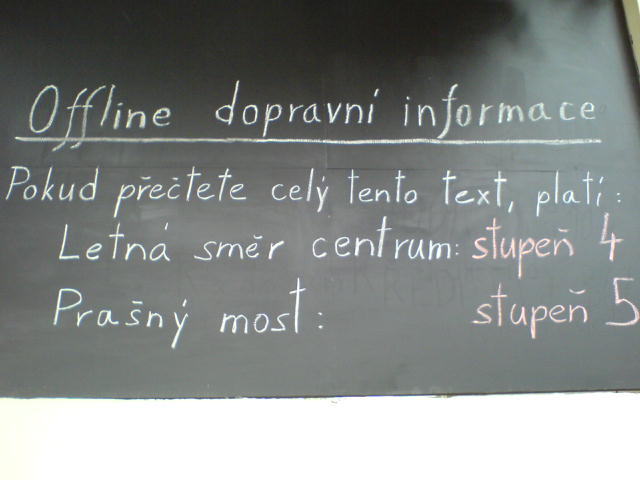 Offline dopravní informace
Pokud přečtete celý tento text, platí:
Letná směr centrum: stupeň 4
Prašný most: stupeň 5